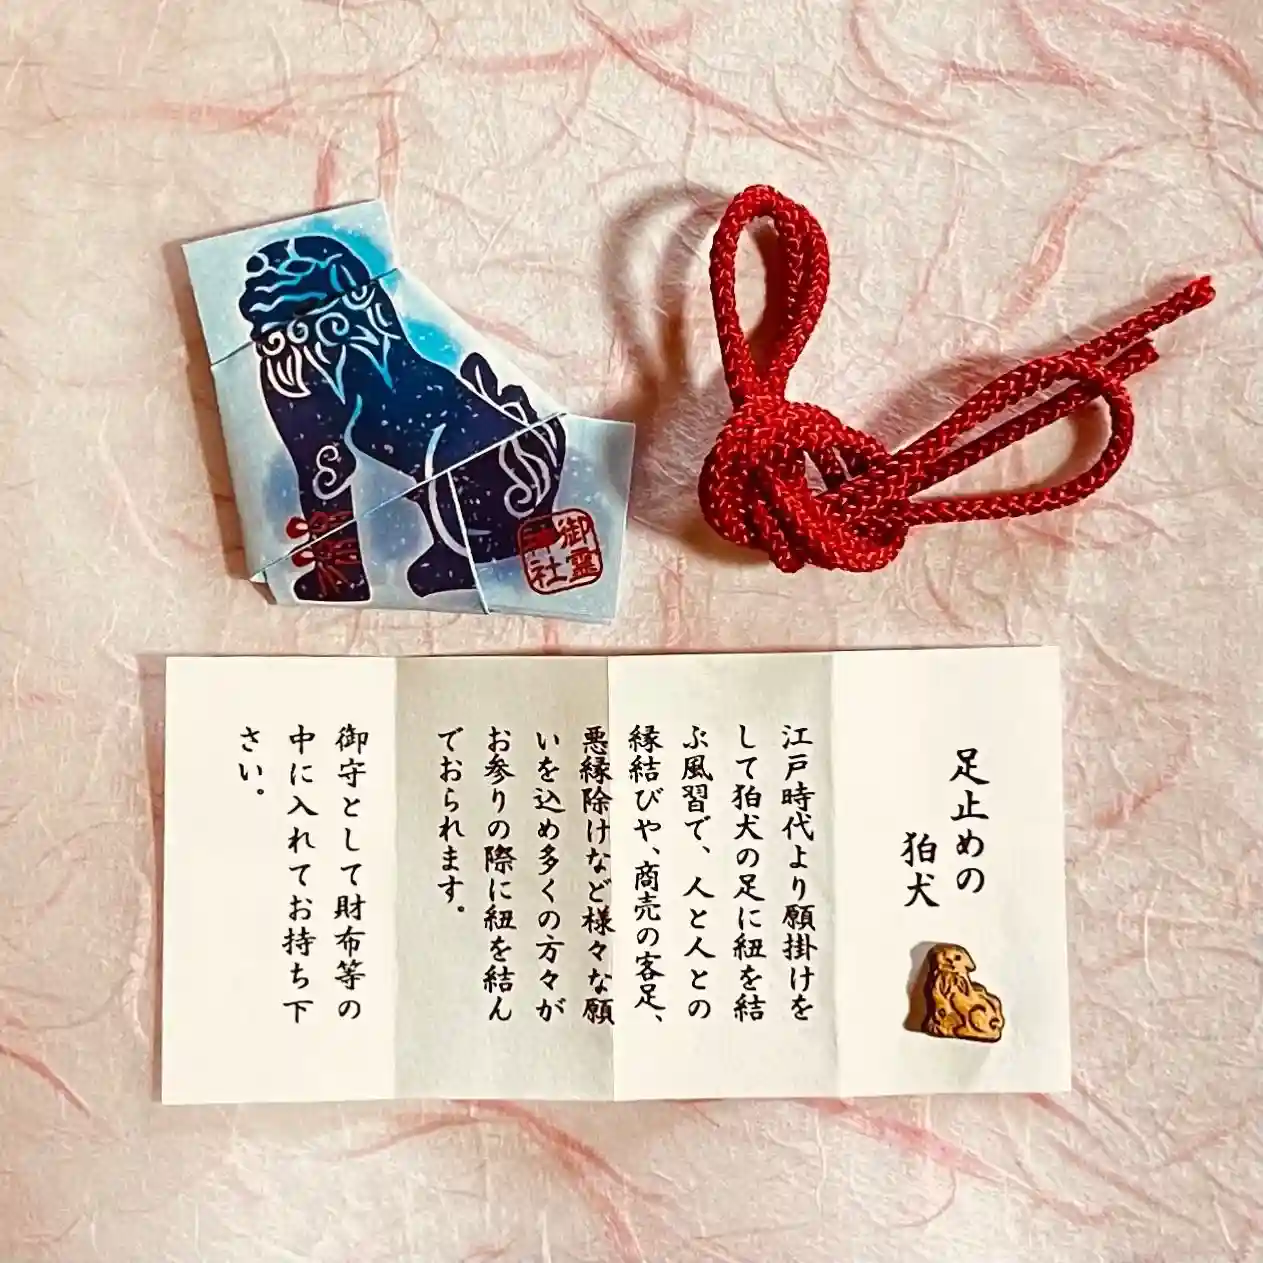 御霊
神社
足止めの
狛犬
江戸時代より願掛けを
して狛犬の足に紐を結
ぶ風習で、人と人との
縁結びや、商売の客足、
悪縁除けなど様々な願
いを込め多くの方々が
お参りの際に紐を結ん
でおられます。
御守として財布等の
中に入れてお持ち下
さい。